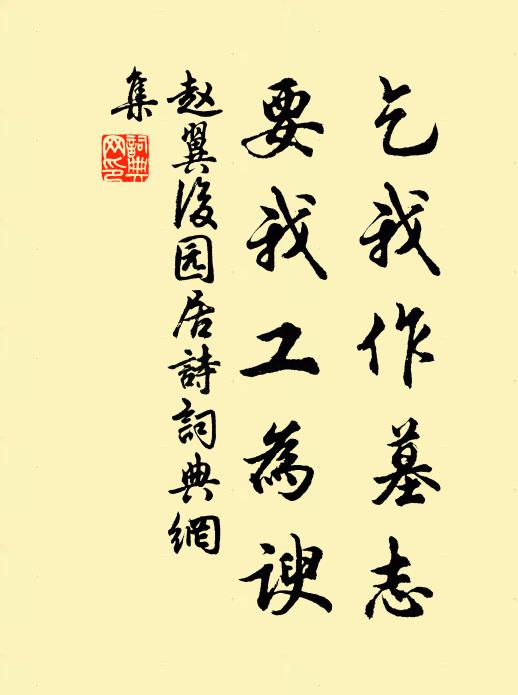 乞我作墓志
要我工為諛
赵翼後园居詩詞典網
集
詞典
网印